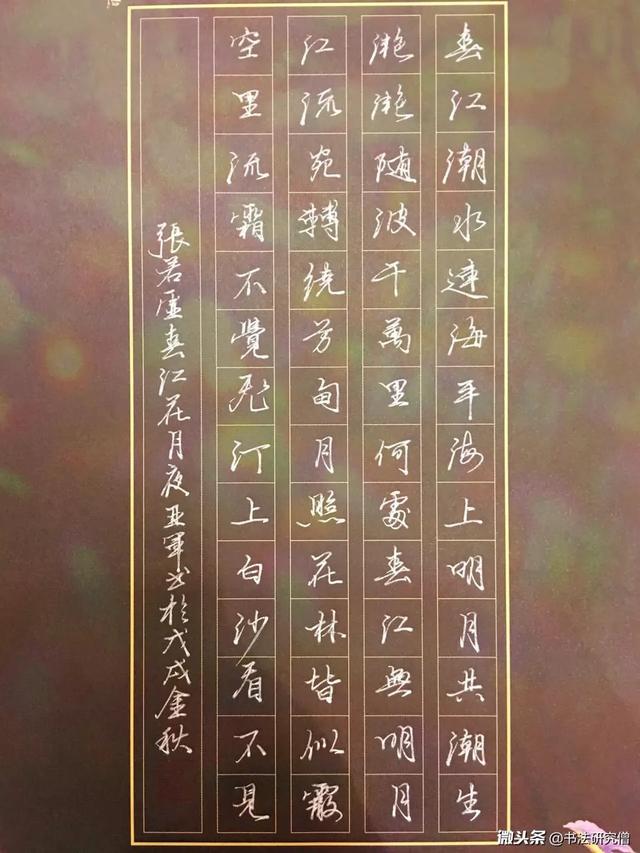 春江潮水連海平海上明月共潮生
滟滟随波千萬里何處春江無明月
江流宛轉绕芳甸月照花林皆似霰
空里流霜不覺飛汀上白沙看不見
張若虛春江花月夜亚軍书於戊戌金秋
微头条 @书法研究僧